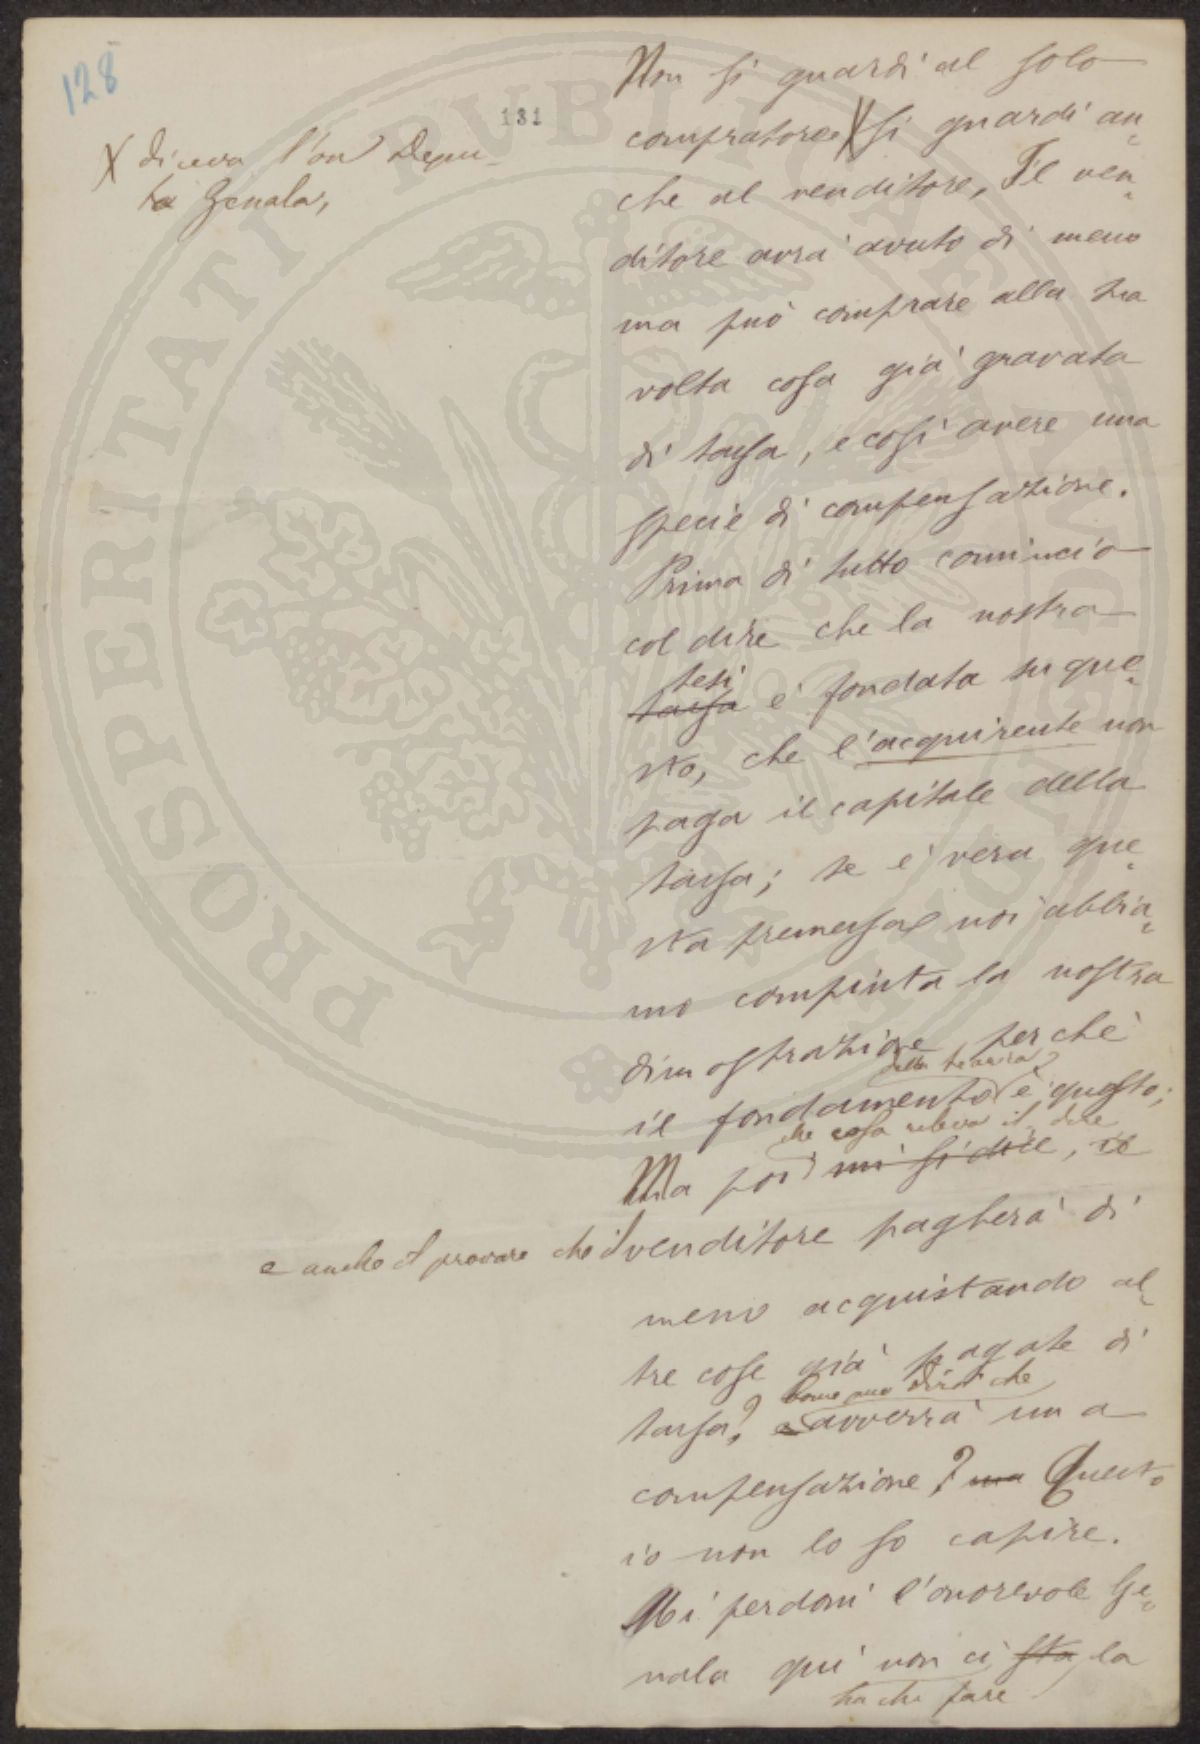 128
131
X diceva l'on Depu-
to Genala,
Non si guardi al solo
compratore X si guardi an-
che al venditore, Il ven-
ditore avrà avuto di meno
ma può comprare alla sua
volta cosa già gravata
di tassa, e così avere una
specie di compensazione.
Prima di tutto comincio
col dire che la nostra
tesi
tassa è fondata su que-
sto, che l'acquirente non
paga il capitale della
tassa; se è vera que-
sta premessa noi abbia-
mo compiuta la nostra
dimostrazione perchè
della teoria
il fondamento è questo;
che cosa rileva il dire
Ma poi mi si dice, il
e anche il provare che il venditore pagherà di
meno acquistando al-
tre cose già pagate di
Come può dirsi che
tassa? e avverrà una
compensazione? ma Questo
io non lo so capire.
Mi perdoni l'onorevole Ge-
nala qui non ci sta la
ha che fare
PROSPERITATI PVBLICAE